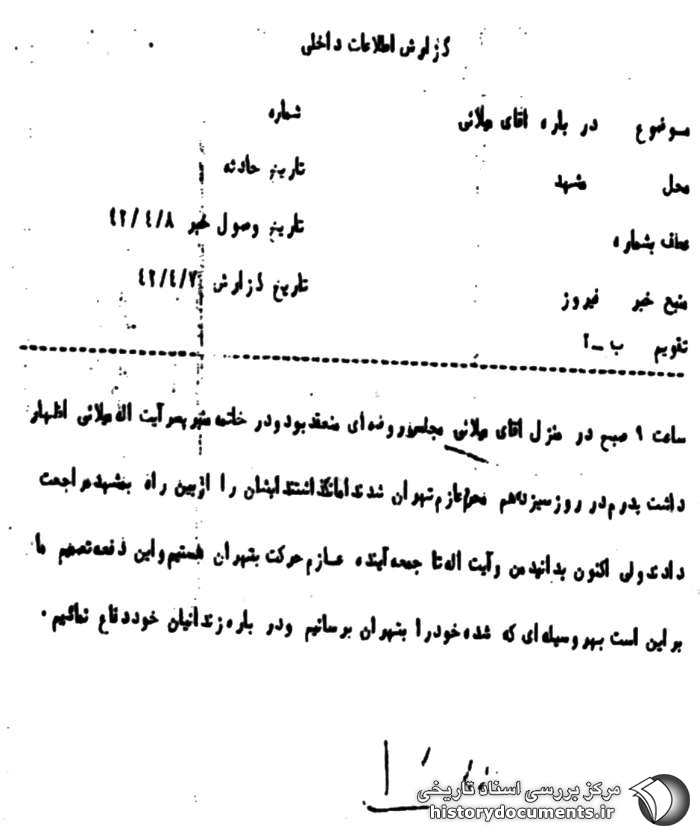 گزارش اطلاعات داخلی
موضوع در باره آقای میلانی شماره
محل مشهد تاریخ حادثه
عطف بشماره تاریخ وصول خبر ٤٢/٤/٨
منبع خبر فیروز تاریخ گزارش ٤٢/٤/٧
تقویم ب ـ ٢
ساعت ٩ صبح در منزل آقای میلانی مجلس روضه‌ای منعقد بود و در خاتمه منبر پسر آیت اله میلانی اظهار
داشت پدرم در روز سیزدهم محرم عازم تهران شدند اما نگذاشتند ایشان را از بین راه بمشهد مراجعت
دادند ولی اکنون بدانید من و آیت اله تا جمعه آینده عازم حرکت بتهران هستیم و این دفعه تصمیم ما
بر این است بهر وسیله‌ای که شده خود را بتهران برسانیم و در باره زندانیان خود دفاع نمائیم .
مرکز بررسی اسناد تاریخی
historydocuments.ir